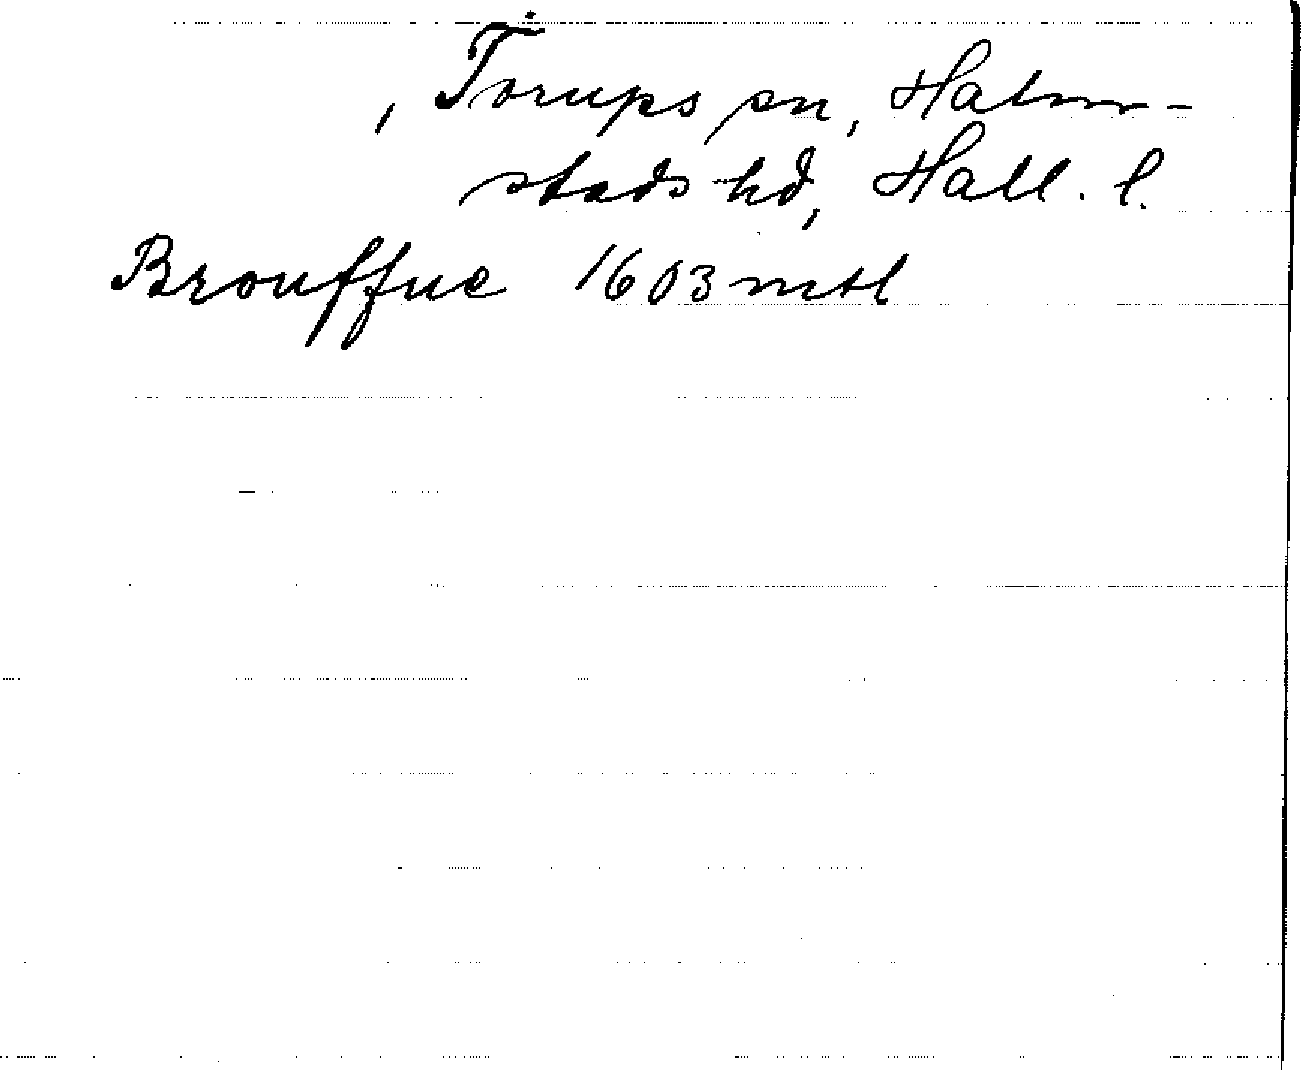 , Torups sn, Halm-
stads hd, Hall. l.
Brouffue 1603 mtl